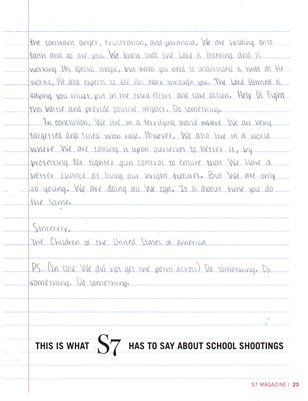 the constant anger, frustration, and paranoia. We are holding onto
faith and so are you. We know that the Lord is listening and is
working his special magic, but what you need to understand is that as He
works, He also expects to see His work through you. The Lord Himself is
saying you must put in the extra effort and take action. Help Us Fight
this battle and provide positive impact. Do something.
In conclusion, We live in a terrifying world where We are being
targetted and filled with rage. However, We also live in a world
where We are taking it upon ourselves to better it, by
protesting for tighter gun control to ensure that We have a
better chance at living our bright futures. But We are only
so young. We are doing all We can. It is about time you do
the same.
Sincerely,
The Children of the United States of America
PS. (In case We did not get the point across) Do something. Do
something. Do something.
THIS IS WHAT S7 HAS TO SAY ABOUT SCHOOL SHOOTINGS
S7 MAGAZINE | 23